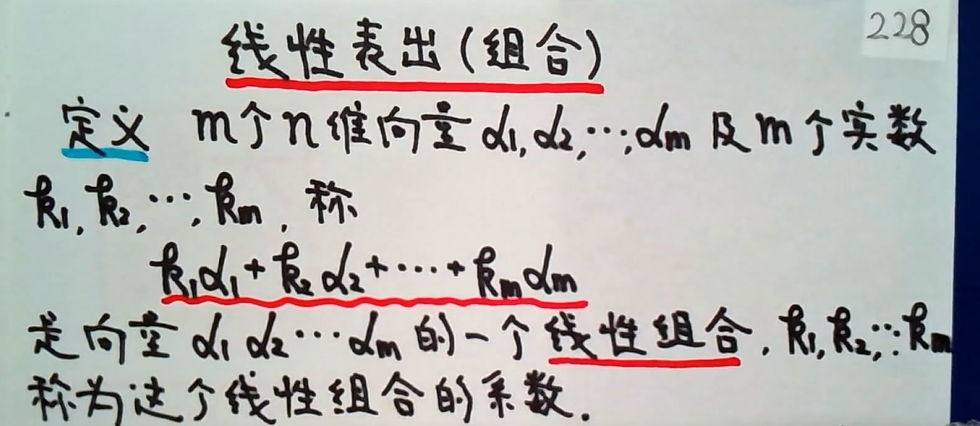 228
线性表出(组合)
定义 m个n维向量 α1,α2,…,αm 及m个实数
k1,k2,…,km,称
k1α1+k2α2+…+kmαm
是向量 α1 α2 … αm 的一个线性组合,k1,k2,…km
称为这个线性组合的系数.